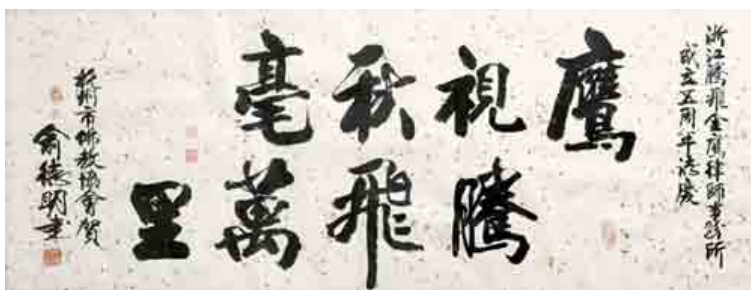 浙江騰飛金鷹律師事務所
成立五周年誌慶
鷹
視騰
秋飛
毫萬
里
杭州市佛教協會賀
俞德明書